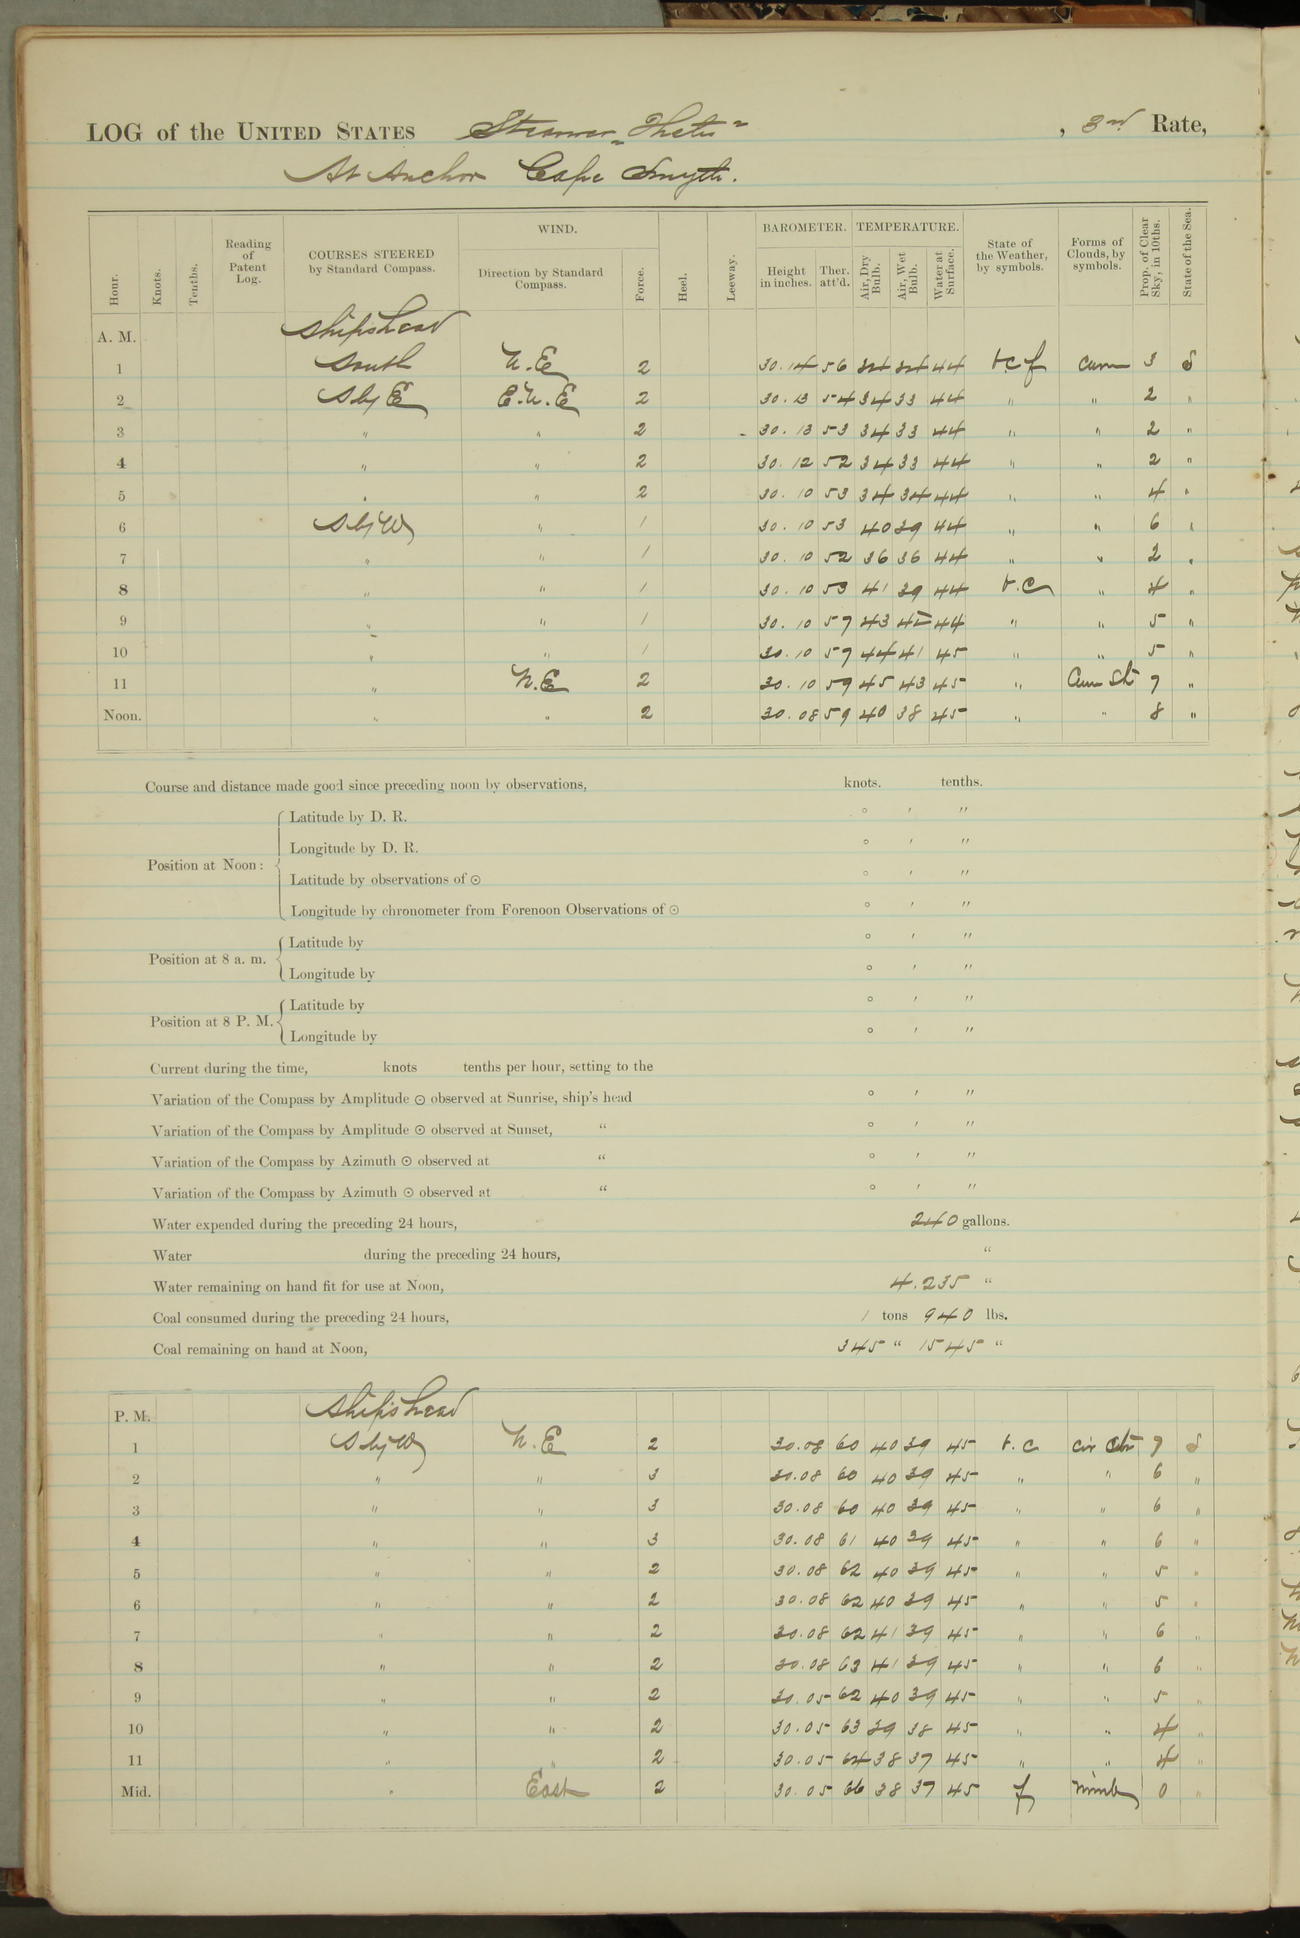 LOG of the UNITED STATES Steamer "Thetis" , 3rd Rate,
At Anchor Cape Smyth.
Hour. Knots. Tenths. Reading of Patent Log. COURSES STEERED by Standard Compass. WIND. Direction by Standard Compass. Force. Heel. Leeway. BAROMETER. Height in inches. Ther. att'd. TEMPERATURE. Air, Dry Bulb. Air, Wet Bulb. Water at Surface. State of the Weather, by symbols. Forms of Clouds, by symbols. Prop. of Clear Sky, in 10ths. State of the Sea.
A. M. Ship's head
1 South N.E 2 30.14 56 34 34 44 b.c.f cum 3 S
2 S by E E.N.E 2 30.13 54 34 33 44 " " 2 "
3 " " 2 30.13 53 34 33 44 " " 2 "
4 " " 2 30.12 52 34 33 44 " " 2 "
5 " " 2 30.10 53 34 34 44 " " 4 "
6 S by W " 1 30.10 53 40 39 44 " " 6 "
7 " " 1 30.10 52 36 36 44 " " 2 "
8 " " 1 30.10 53 41 39 44 b.c " 4 "
9 " " 1 30.10 57 43 44 " " 5 "
10 " " 1 30.10 57 44 41 45 " " 5 "
11 " N.E 2 30.10 59 45 43 45 " Cum St 7 "
Noon. " " 2 30.08 59 40 38 45 " " 8 "
Course and distance made good since preceding noon by observations, knots. tenths.
Position at Noon: Latitude by D. R. ° ′ ″
Longitude by D. R. ° ′ ″
Latitude by observations of ☉ ° ′ ″
Longitude by chronometer from Forenoon Observations of ☉ ° ′ ″
Position at 8 a. m. Latitude by ° ′ ″
Longitude by ° ′ ″
Position at 8 P. M. Latitude by ° ′ ″
Longitude by ° ′ ″
Current during the time, knots tenths per hour, setting to the
Variation of the Compass by Amplitude ☉ observed at Sunrise, ship's head ° ′ ″
Variation of the Compass by Amplitude ☉ observed at Sunset, " ° ′ ″
Variation of the Compass by Azimuth ☉ observed at " ° ′ ″
Variation of the Compass by Azimuth ☉ observed at " ° ′ ″
Water expended during the preceding 24 hours, 240 gallons.
Water during the preceding 24 hours, "
Water remaining on hand fit for use at Noon, 4.235 "
Coal consumed during the preceding 24 hours, 1 tons 940 lbs.
Coal remaining on hand at Noon, 345 " 1545 "
P. M. Ship's head
1 S by W N.E 2 30.08 60 40 39 45 b.c cir Str 7 S
2 " " 3 30.08 60 40 39 45 " " 6 "
3 " " 3 30.08 60 40 39 45 " " 6 "
4 " " 3 30.08 61 40 39 45 " " 6 "
5 " " 2 30.08 62 40 39 45 " " 5 "
6 " " 2 30.08 62 40 39 45 " " 5 "
7 " " 2 30.08 62 41 39 45 " " 6 "
8 " " 2 30.08 63 41 39 45 " " 6 "
9 " " 2 30.05 62 40 39 45 " " 5 "
10 " " 2 30.05 63 39 38 45 " " 4 "
11 " " 2 30.05 64 38 37 45 " " 4 "
Mid. " East 2 30.05 66 38 37 45 f Nimb 0 "